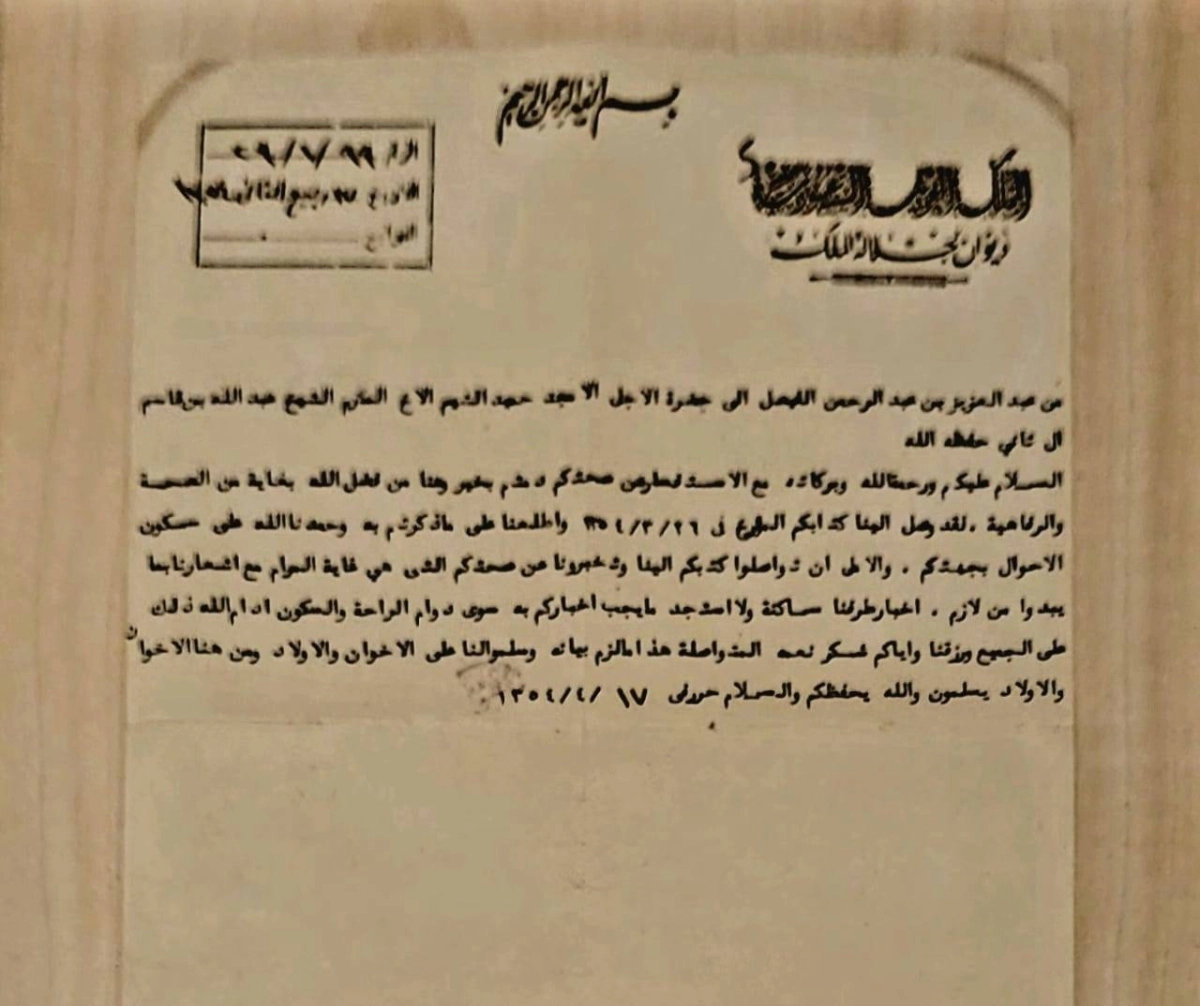 بسم الله الرحمن الرحيم
المملكة العربية السعودية
ديوان جلالة الملك
التاريخ ١٧ ربيع الثاني
من عبد العزيز بن عبد الرحمن الفيصل الى حضرة الاجل الامجد حميد الشيم الاخ المكرم الشيخ عبد الله بن قاسم
ال ثاني حفظه الله
السلام عليكم ورحمة الله وبركاته مع الاستفسار عن صحتكم دمتم بخير وهنا من فضل الله بغاية من الصحة
والرفاهية . لقد وصل الينا كتابكم المؤرخ في ١٣٥٤/٣/٢٦ واطلعنا على ماذكرتم به وحمدنا الله على سكون
الاحوال بجهتكم . والامل ان تواصلوا كتبكم الينا وتخبرونا عن صحتكم التي هي غاية المرام مع اشعارنا بما
يبدوا من لازم . اخبار طرفنا ساكنة ولا استجد مايجب اخباركم به سوى دوام الراحة والسكون ادام الله ذلك
على الجميع ورزقنا واياكم شكر نعمه المتواصلة هذا مالزم بيانه وسلموا لنا على الاخوان والاولاد ومن هنا الاخوان
والاولاد يسلمون والله يحفظكم والسلام حرر في ١٣٥٤/٤/١٧